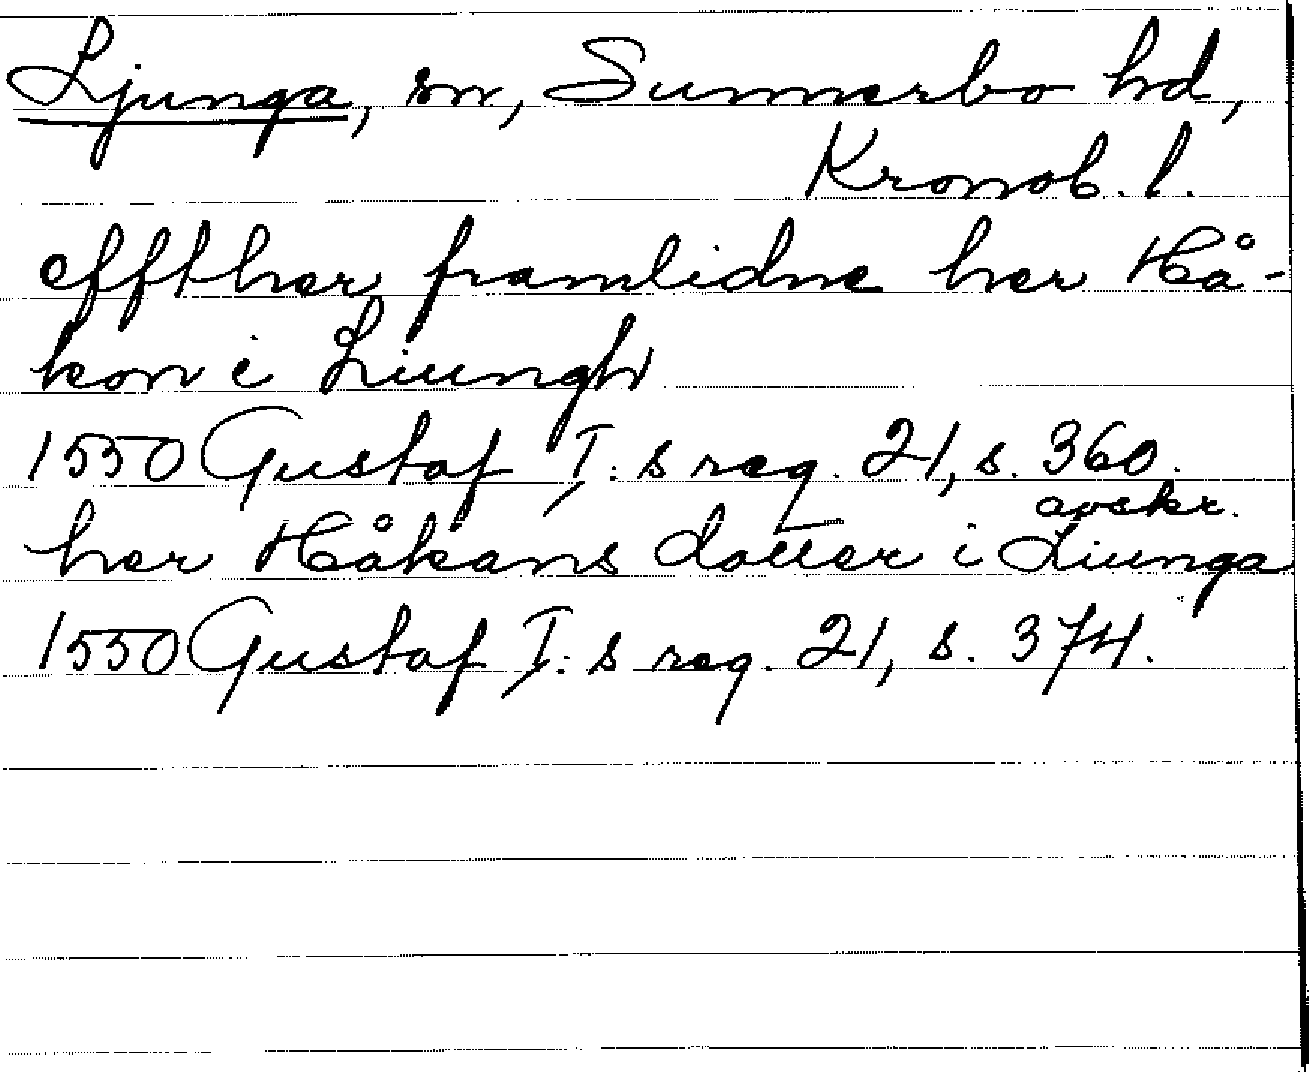 Ljunga, sn, Sunnerbo hd,
Kronob. l.
effther framlidne her Hå-
kon i Liungh
1550 Gustaf I:s reg. 21, s. 360.
avskr.
her Håkans dotter i Liunga
1550 Gustaf I:s reg. 21, s. 374.